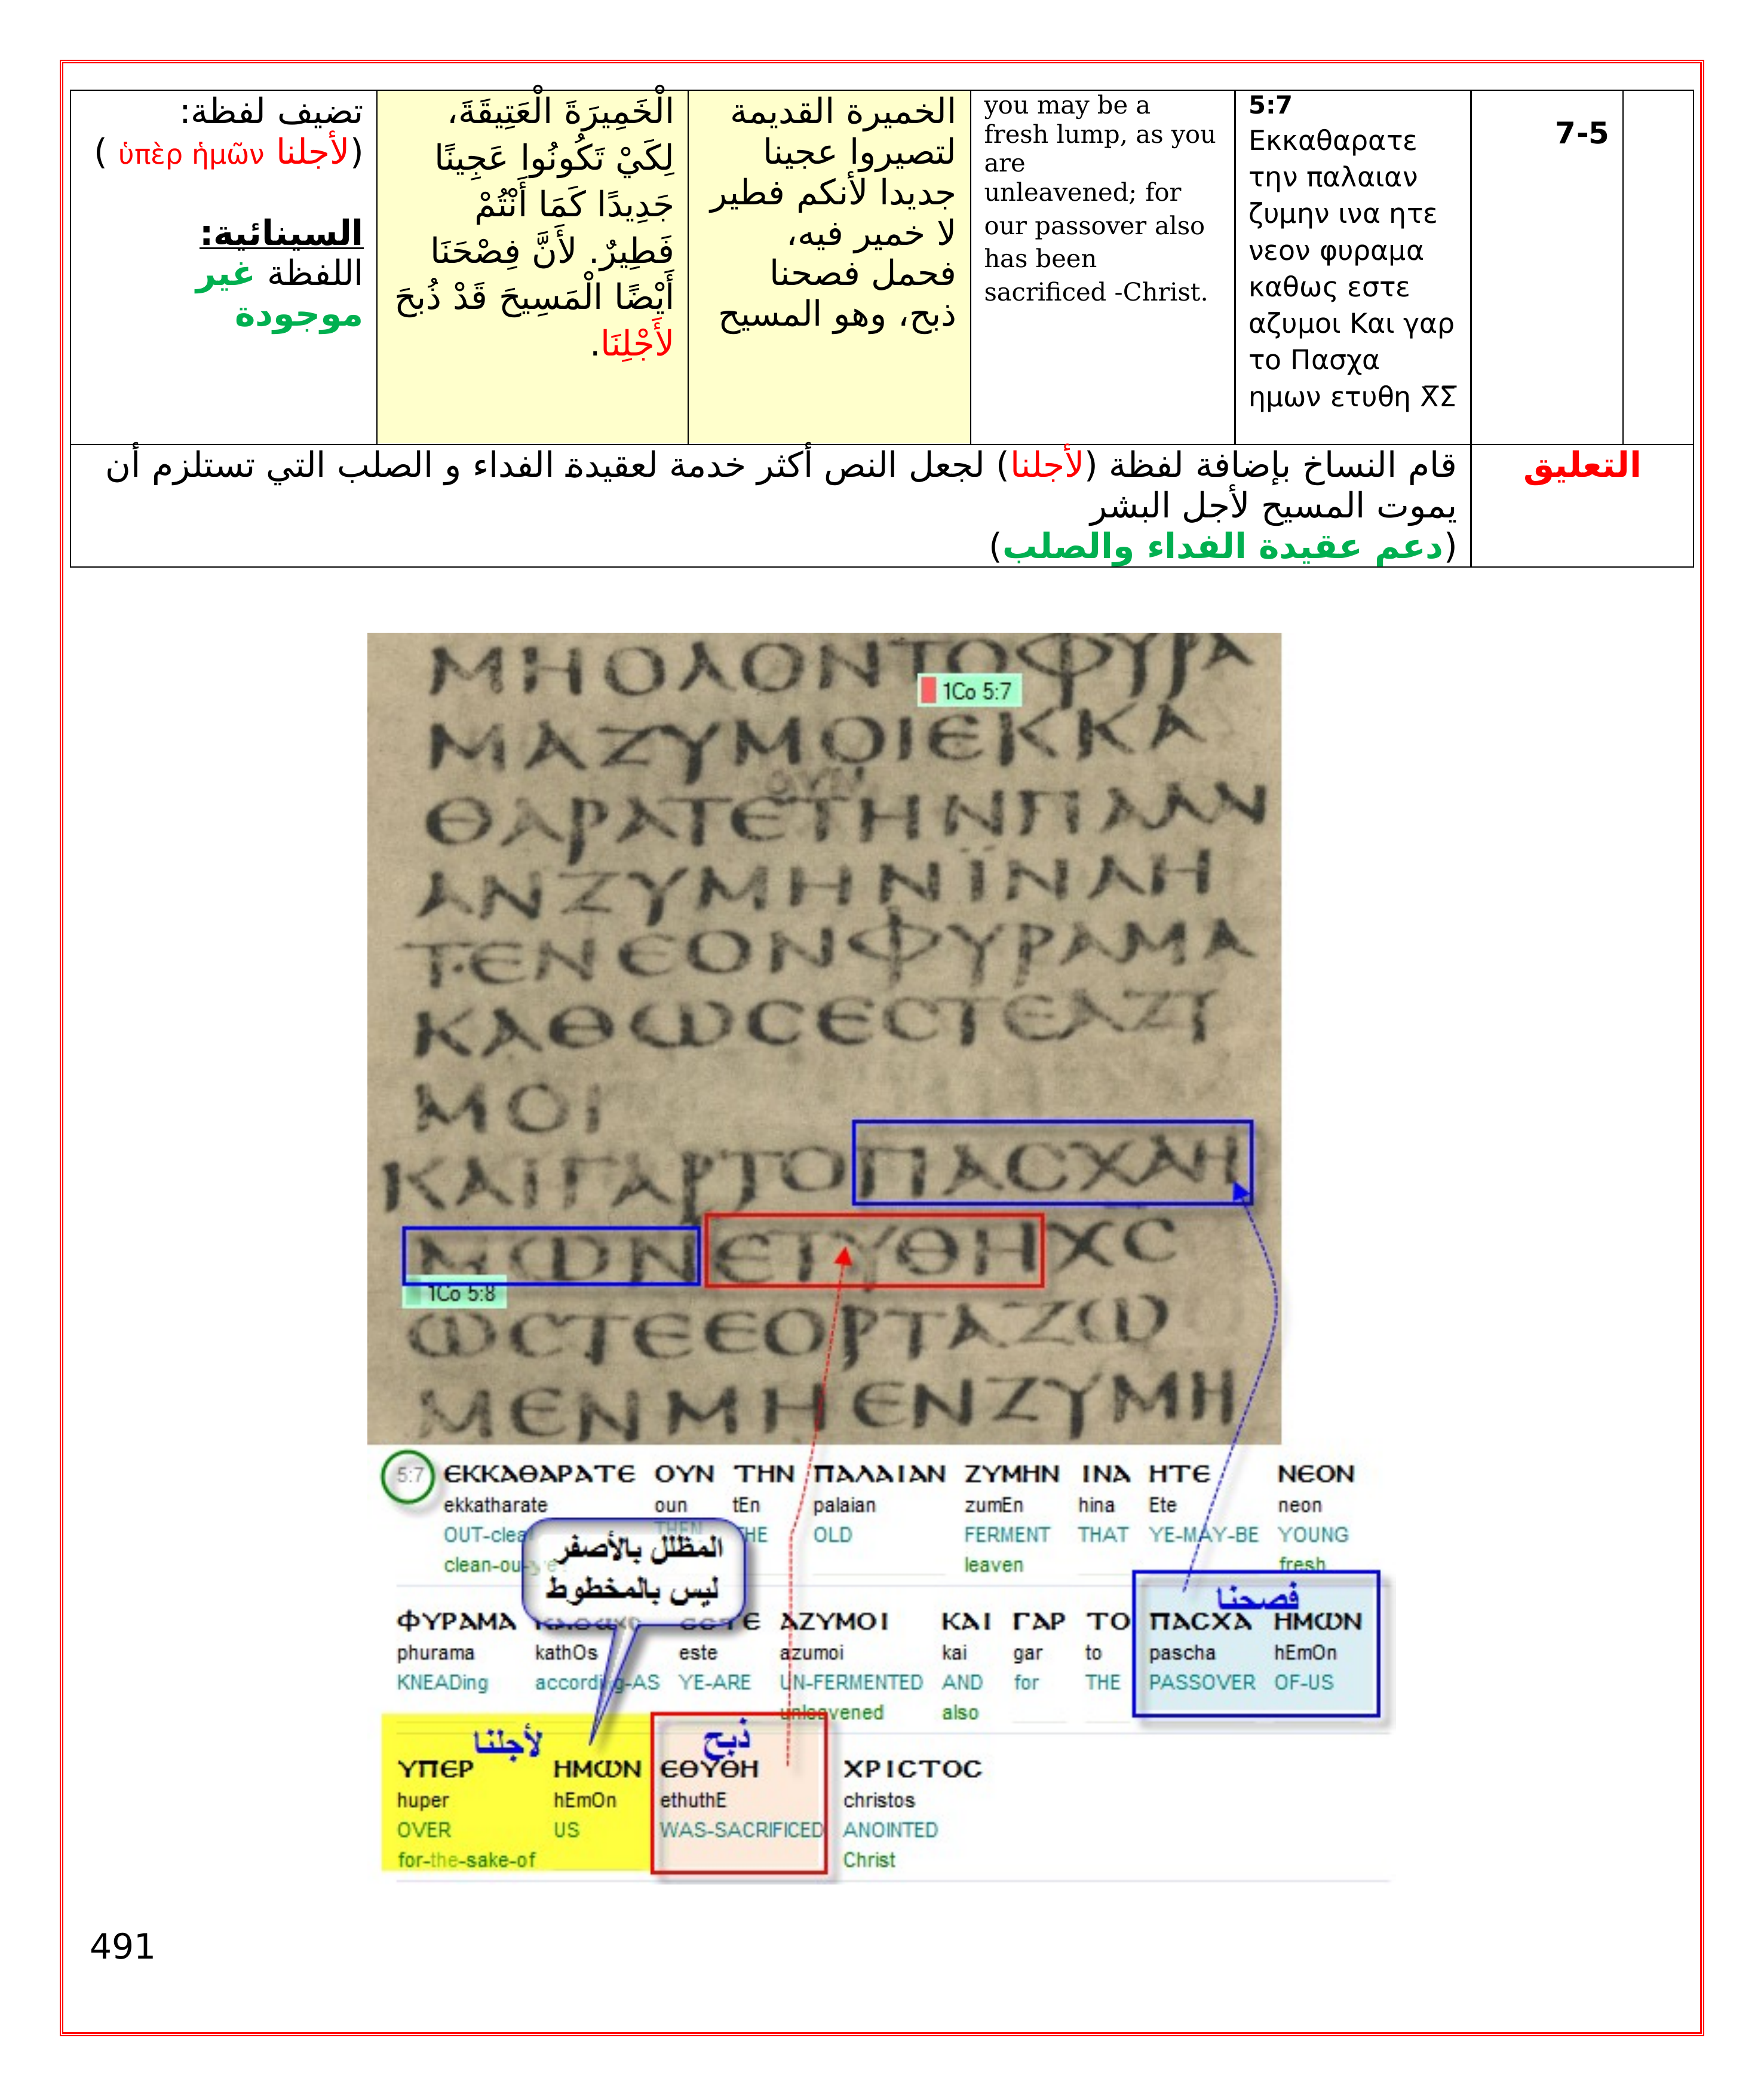 7-5
5:7
Εκκαθαρατε
την παλαιαν
ζυμην ινα ητε
νεον φυραμα
καθως εστε
αζυμοι Και γαρ
το Πασχα
ημων ετυθη Χ̅Σ̅
you may be a
fresh lump, as you
are
unleavened; for
our passover also
has been
sacrificed -Christ.
الخميرة القديمة
لتصيروا عجينا
جديدا لأنكم فطير
لا خمير فيه،
فحمل فصحنا
ذبح، وهو المسيح
الْخَمِيرَةَ الْعَتِيقَةَ،
لِكَيْ تَكُونُوا عَجِينًا
جَدِيدًا كَمَا أَنْتُمْ
فَطِيرٌ. لأَنَّ فِصْحَنَا
أَيْضًا الْمَسِيحَ قَدْ ذُبحَ
لأَجْلِنَا.
تضيف لفظة:
(لأجلنا ὑπὲρ ἡμῶν )
السينائية:
اللفظة غير
موجودة
التعليق
قام النساخ بإضافة لفظة (لأجلنا) لجعل النص أكثر خدمة لعقيدة الفداء و الصلب التي تستلزم أن
يموت المسيح لأجل البشر
(دعم عقيدة الفداء والصلب)
ΜΗΟΛΟΝΤΟΦΥΡΑ
1Co 5:7
ΜΑΖΥΜΟΙΕΚΚΑ
ΟΥΝ
ΘΑΡΑΤΕΤΗΝΠΑΛΑΙ
ΑΝΖΥΜΗΝΪΝΑΗ
ΤΕΝΕΟΝΦΥΡΑΜΑ
ΚΑΘΩϹΕϹΤΕΑΖΥ
ΜΟΙ
ΚΑΙΓΑΡΤΟΠΑϹΧΑΗ
ΜΩΝΕΤΥΘΗΧϹ
1Co 5:8
ΩϹΤΕΕΟΡΤΑΖΩ
ΜΕΝΜΗΕΝΖΥΜΗ
5:7 ЄΚΚΑΘΑΡΑΤЄ ΟΥΝ ΤΗΝ ΠΑΛΑΙΑΝ ΖΥΜΗΝ ΙΝΑ ΗΤЄ ΝЄΟΝ
ekkatharate oun tEn palaian zumEn hina Ete neon
OUT-clea THEN THE OLD FERMENT THAT YE-MAY-BE YOUNG
clean-ou leaven fresh
المظلل بالأصفر
ليس بالمخطوط
فصحنا
ΦΥΡΑΜΑ ΑΖΥΜΟΙ ΚΑΙ ΓΑΡ ΤΟ ΠΑϹΧΑ ΗΜΩΝ
phurama kathOs este azumoi kai gar to pascha hEmOn
KNEADing according-AS YE-ARE UN-FERMENTED AND for THE PASSOVER OF-US
unleavened also
لأجلنا ذبح
ΥΠЄΡ ΗΜΩΝ ЄΘΥΘΗ ΧΡΙϹΤΟϹ
huper hEmOn ethuthE christos
OVER US WAS-SACRIFICED ANOINTED
for-the-sake-of Christ
491